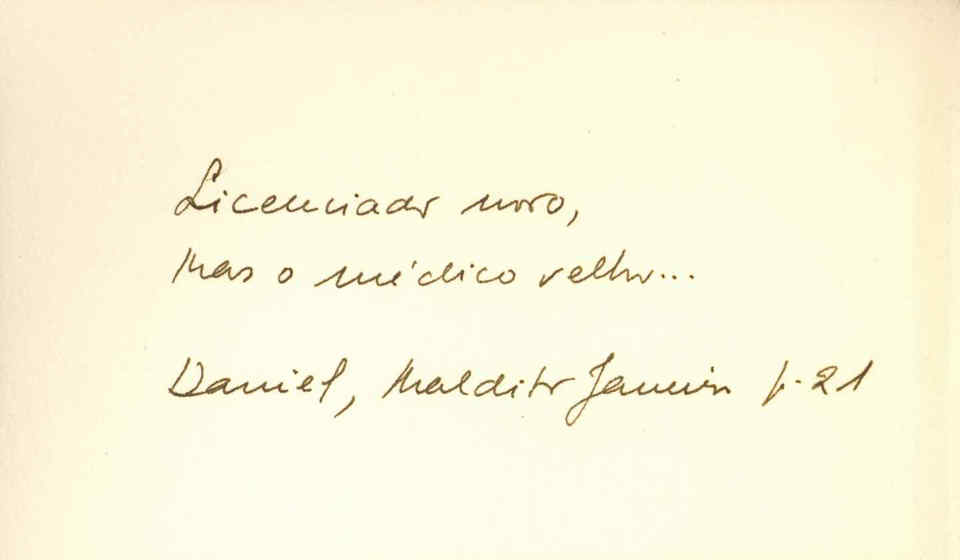 Licenciado novo,
mas o médico velho...
Daniel, Maldito Janeiro p. 21